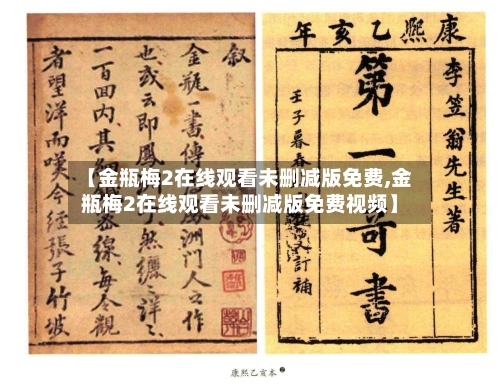 叙
金瓶一書傳
洲門人之作
也或云即鳳
然纏纏洋洋
一百回内其細
密線每令觀
者望洋而嘆今經張子竹坡
康熙乙亥年
李笠翁先生著
第一奇書
壬子暮春
訂補
【金瓶梅2在线观看未删减版免费,金
瓶梅2在线观看未删减版免费视频】
康熙乙亥本❷